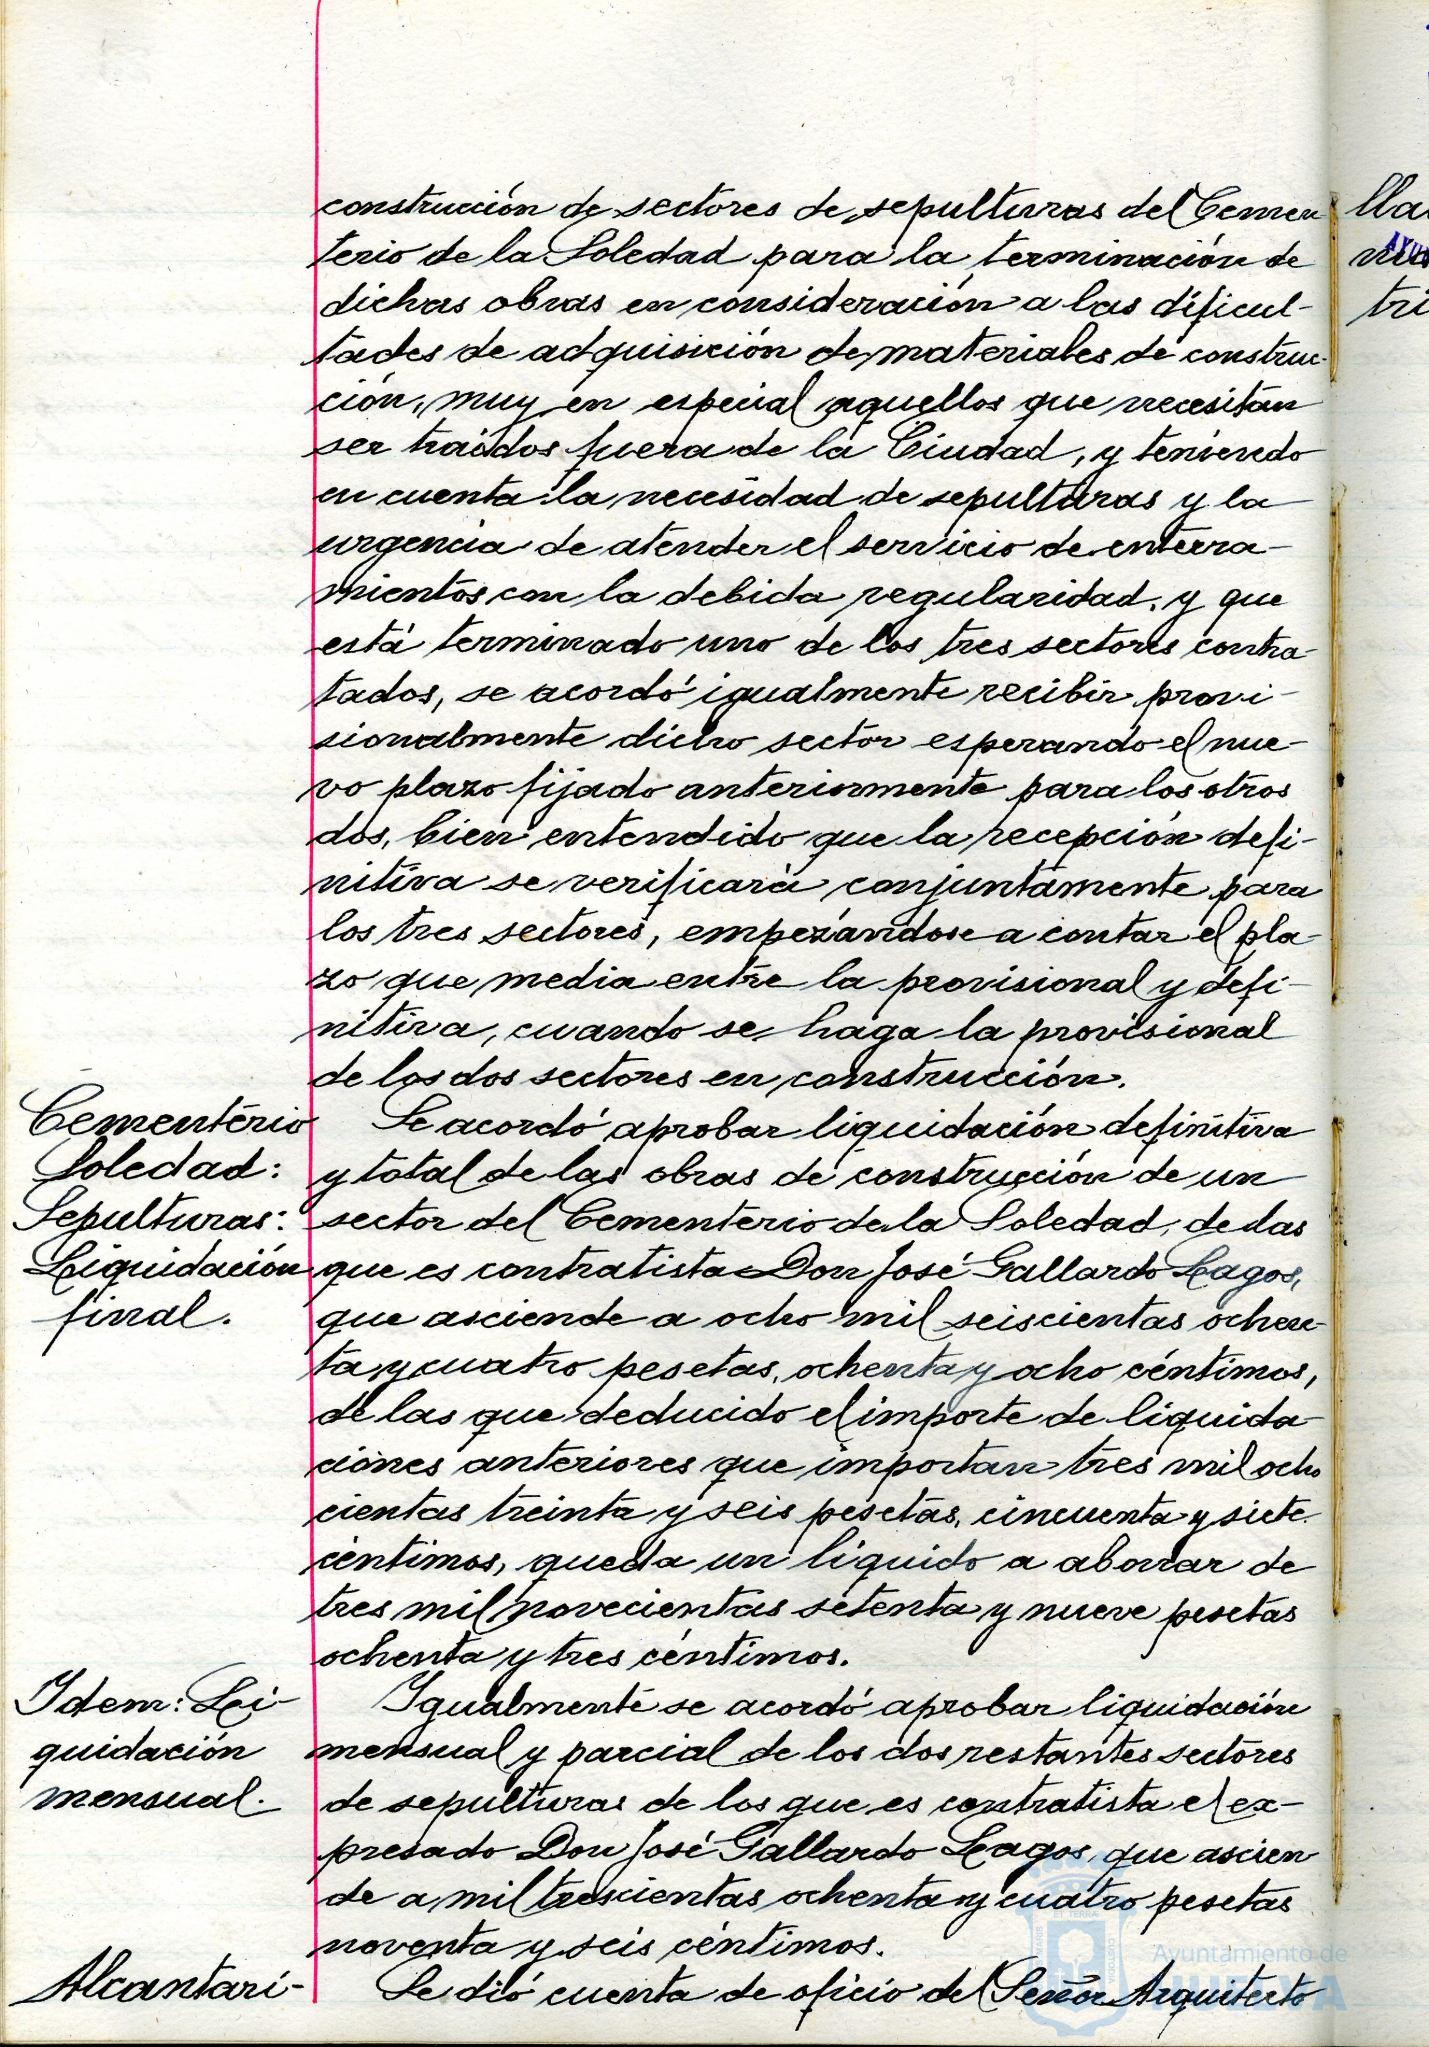 construcción de sectores de sepulturas del Cemen
terio de la Soledad para la terminación de
dichas obras en consideración a las dificul-
tades de adquisición de materiales de construc-
ción, muy en especial aquellos que necesitan
ser traidos fuera de la Ciudad, y teniendo
en cuenta la necesidad de sepulturas y la
urgencia de atender el servicio de enterra-
mientos con la debida regularidad, y que
está terminado uno de los tres sectores contra-
tados, se acordó igualmente recibir provi-
sionalmente dicho sector esperando el nue-
vo plazo fijado anteriormente para los otros
dos, bien entendido que la recepción defi-
nitiva se verificará conjuntamente para
los tres sectores, empezándose a contar el pla-
zo que media entre la provisional y defi-
nitiva, cuando se haga la provisional
de los dos sectores en construcción.
Cementerio
Soledad:
Sepulturas:
Liquidación
final.
Se acordó aprobar liquidación definitiva
y total de las obras de construcción de un
sector del Cementerio de la Soledad, de las
que es contratista Don José Gallardo Lagos,
que asciende a ocho mil seiscientas ochen-
ta y cuatro pesetas, ochenta y ocho céntimos,
de las que deducido el importe de liquida-
ciones anteriores que importan tres mil ocho
cientas treinta y seis pesetas, cincuenta y siete
céntimos, queda un líquido a abonar de
tres mil novecientas setenta y nueve pesetas
ochenta y tres céntimos.
Idem: Li-
quidación
mensual.
Igualmente se acordó aprobar liquidación
mensual y parcial de los dos restantes sectores
de sepulturas de los que es contratista el ex-
presado Don José Gallardo Lagos, que ascien
de a mil trescientas ochenta y cuatro pesetas
noventa y seis céntimos.
Alcantari-
Se dió cuenta de oficio del Señor Arquitecto
lla
tri
Ayuntamiento de
HUELVA